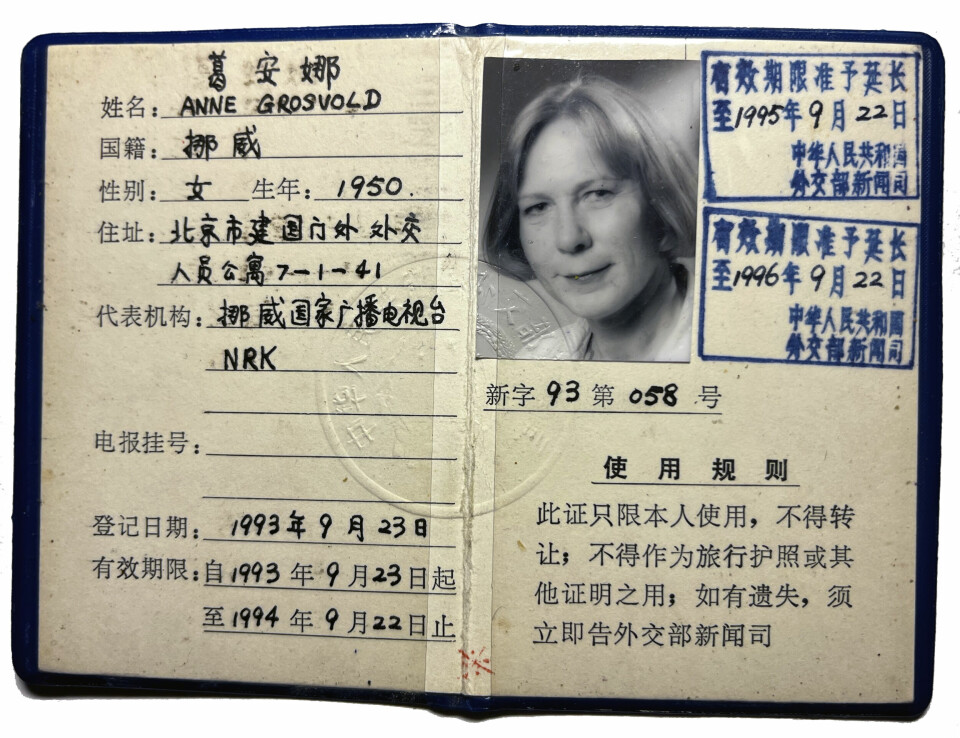 葛安娜
姓名：ANNE GROSVOLD
国籍：挪威
性别：女 生年：1950.
住址：北京市建国门外外交
人员公寓7-1-41
代表机构：挪威国家广播电视台
NRK
电报挂号：
登记日期：1993年9月23日
有效期限：自1993年9月23日起
至1994年9月22日止
有效期限准予延长
至1995年9月22日
中华人民共和国
外交部新闻司
有效期限准予延长
至1996年9月22日
中华人民共和国
外交部新闻司
新字93第058号
使用规则
此证只限本人使用，不得转
让；不得作为旅行护照或其
他证明之用；如有遗失，须
立即告外交部新闻司